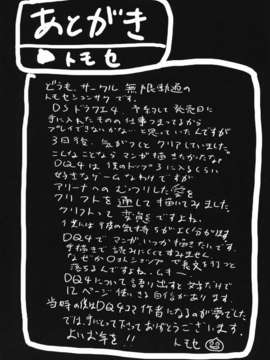 あとがき
トモセ
どうも、サークル 無限軌道の
トモセシュンサク です。
DSドラクエ4 やっとして 発売日に
手に入れたものの 仕事つまってるから
プレイできないかな…と思っていたんですが
3日後、気がつくと クリアしていました。
こんなことなら マンガ 描きたかったな
DQ4は トップ3に入るくらい
好きなゲームなわけですが
アリーナへの むっつりした愛を
クリフトを通して 描いてみました。
クリフトって 変質 ですよね。
気持ちがよくわかります
DQ4で マンガ いつか 描きたいです。
手描きで 読みにくくて すみません
なぜか で長文を打つと
落ちるんですよね、ムキー
DQ4について 語り出すと
12ページ 使いきる 自信があります
当時の僕はDQ4コマ作者になるのが夢でした
では、手にとって下さって ありがとうございます。
よいお年を!!
トモセ